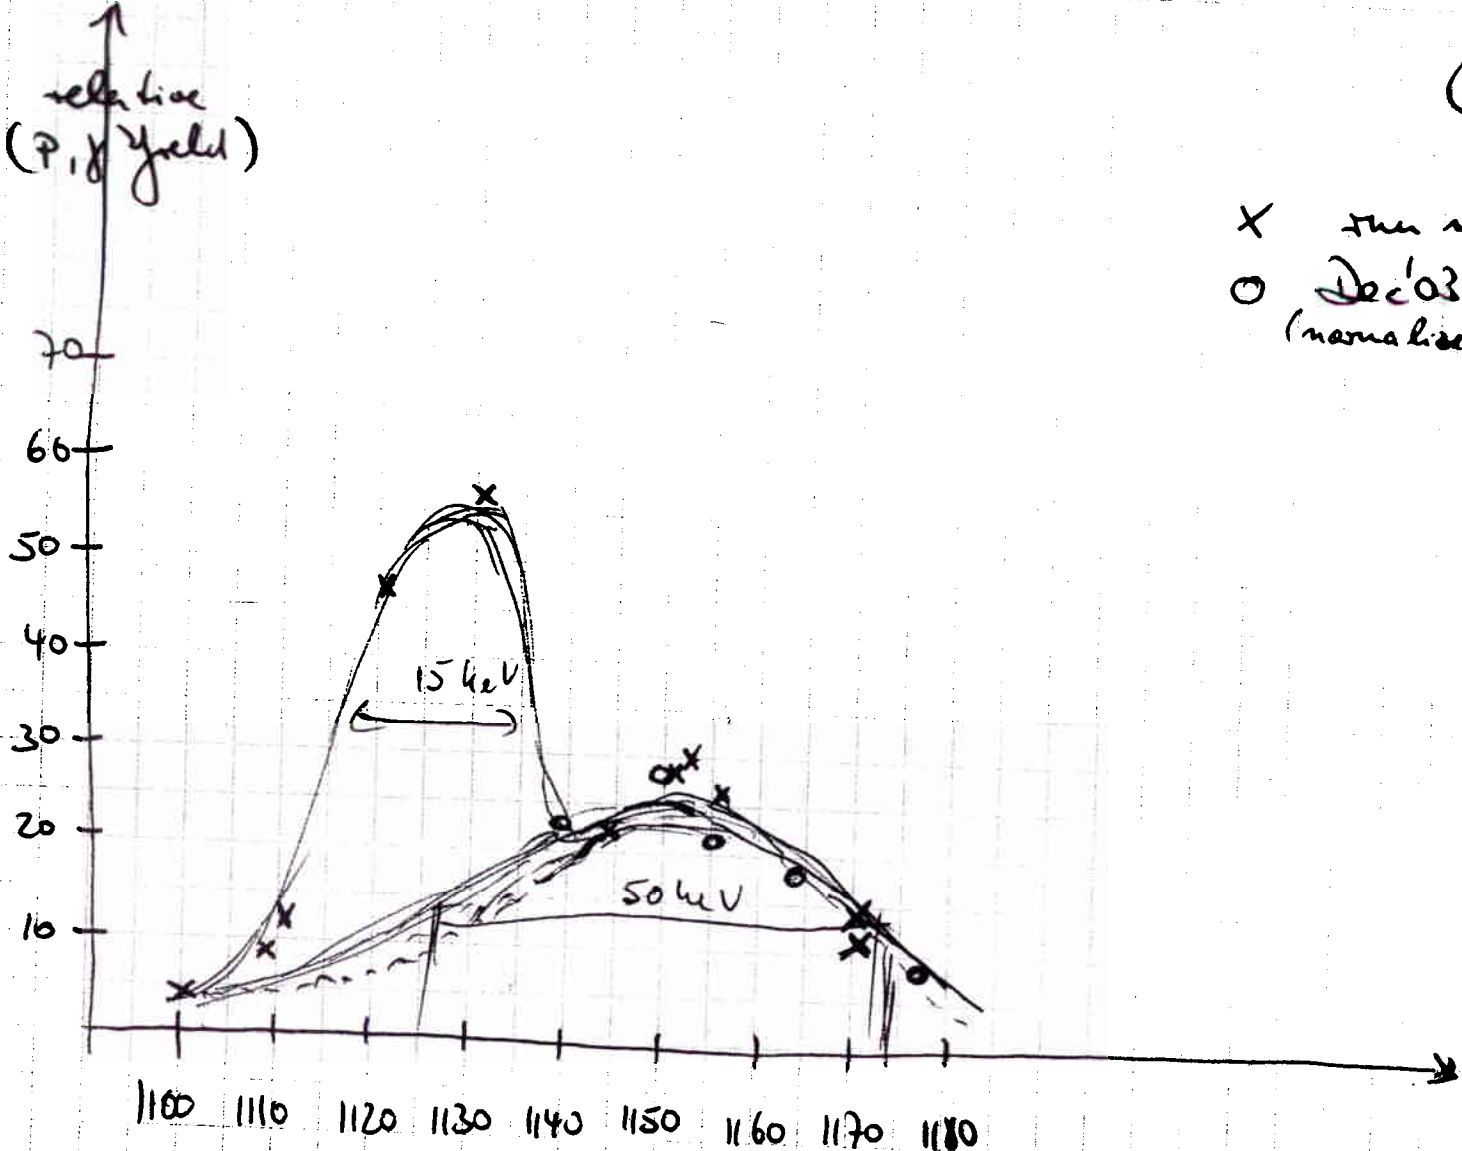 relative
(P, γ Yield)
(
x
o Dec'03
70
60
50
40
30
20
10
15 keV
50 keV
1100 1110 1120 1130 1140 1150 1160 1170 1180